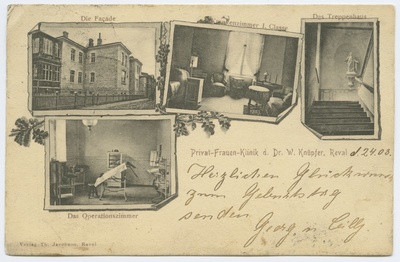 Die Façade
Krankenzimmer I. Classe
Das Treppenhaus
Das Operationszimmer
Privat-Frauen-Klinik d. Dr. W. Knüpfer, Reval
d. 24. 03.
Herzlichen Glückwunsch
zum Geburtstag
senden
Georg u. Cilly.
Verlag Th. Jacobson, Reval